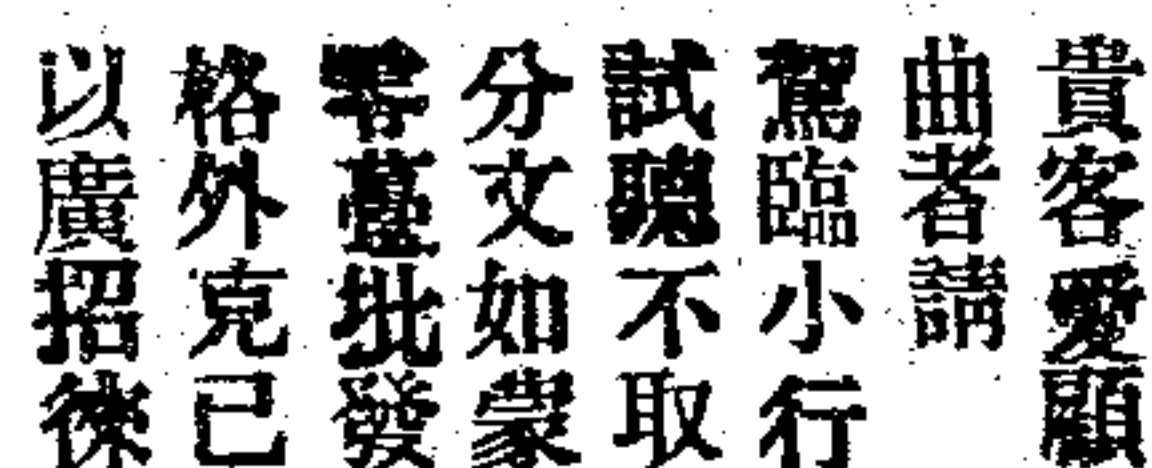 貴客愛顧
曲者請
駕臨小行
試聽不取
分文如蒙
零躉批發
格外克己
以廣招徠